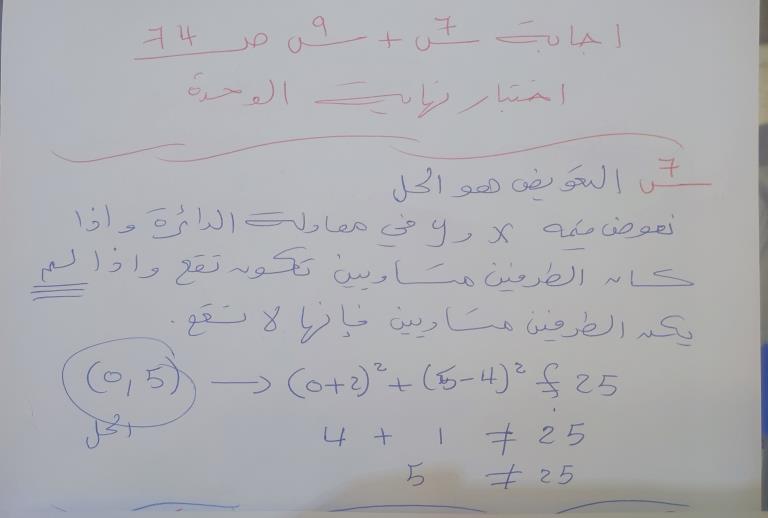 اجابة س7 + س9 ص 74
اختبار نهاية الوحدة
س7 التعويض هو الحل
نعوض قيمه x و y في معادلة الدائرة واذا
كان الطرفين متساويين تكون تقع واذا لم
يكن الطرفين متساويين فإنها لا تقع.
(0,5) → (0+2)² + (5-4)² ≟ 25
الحل 4 + 1 ≠ 25
5 ≠ 25